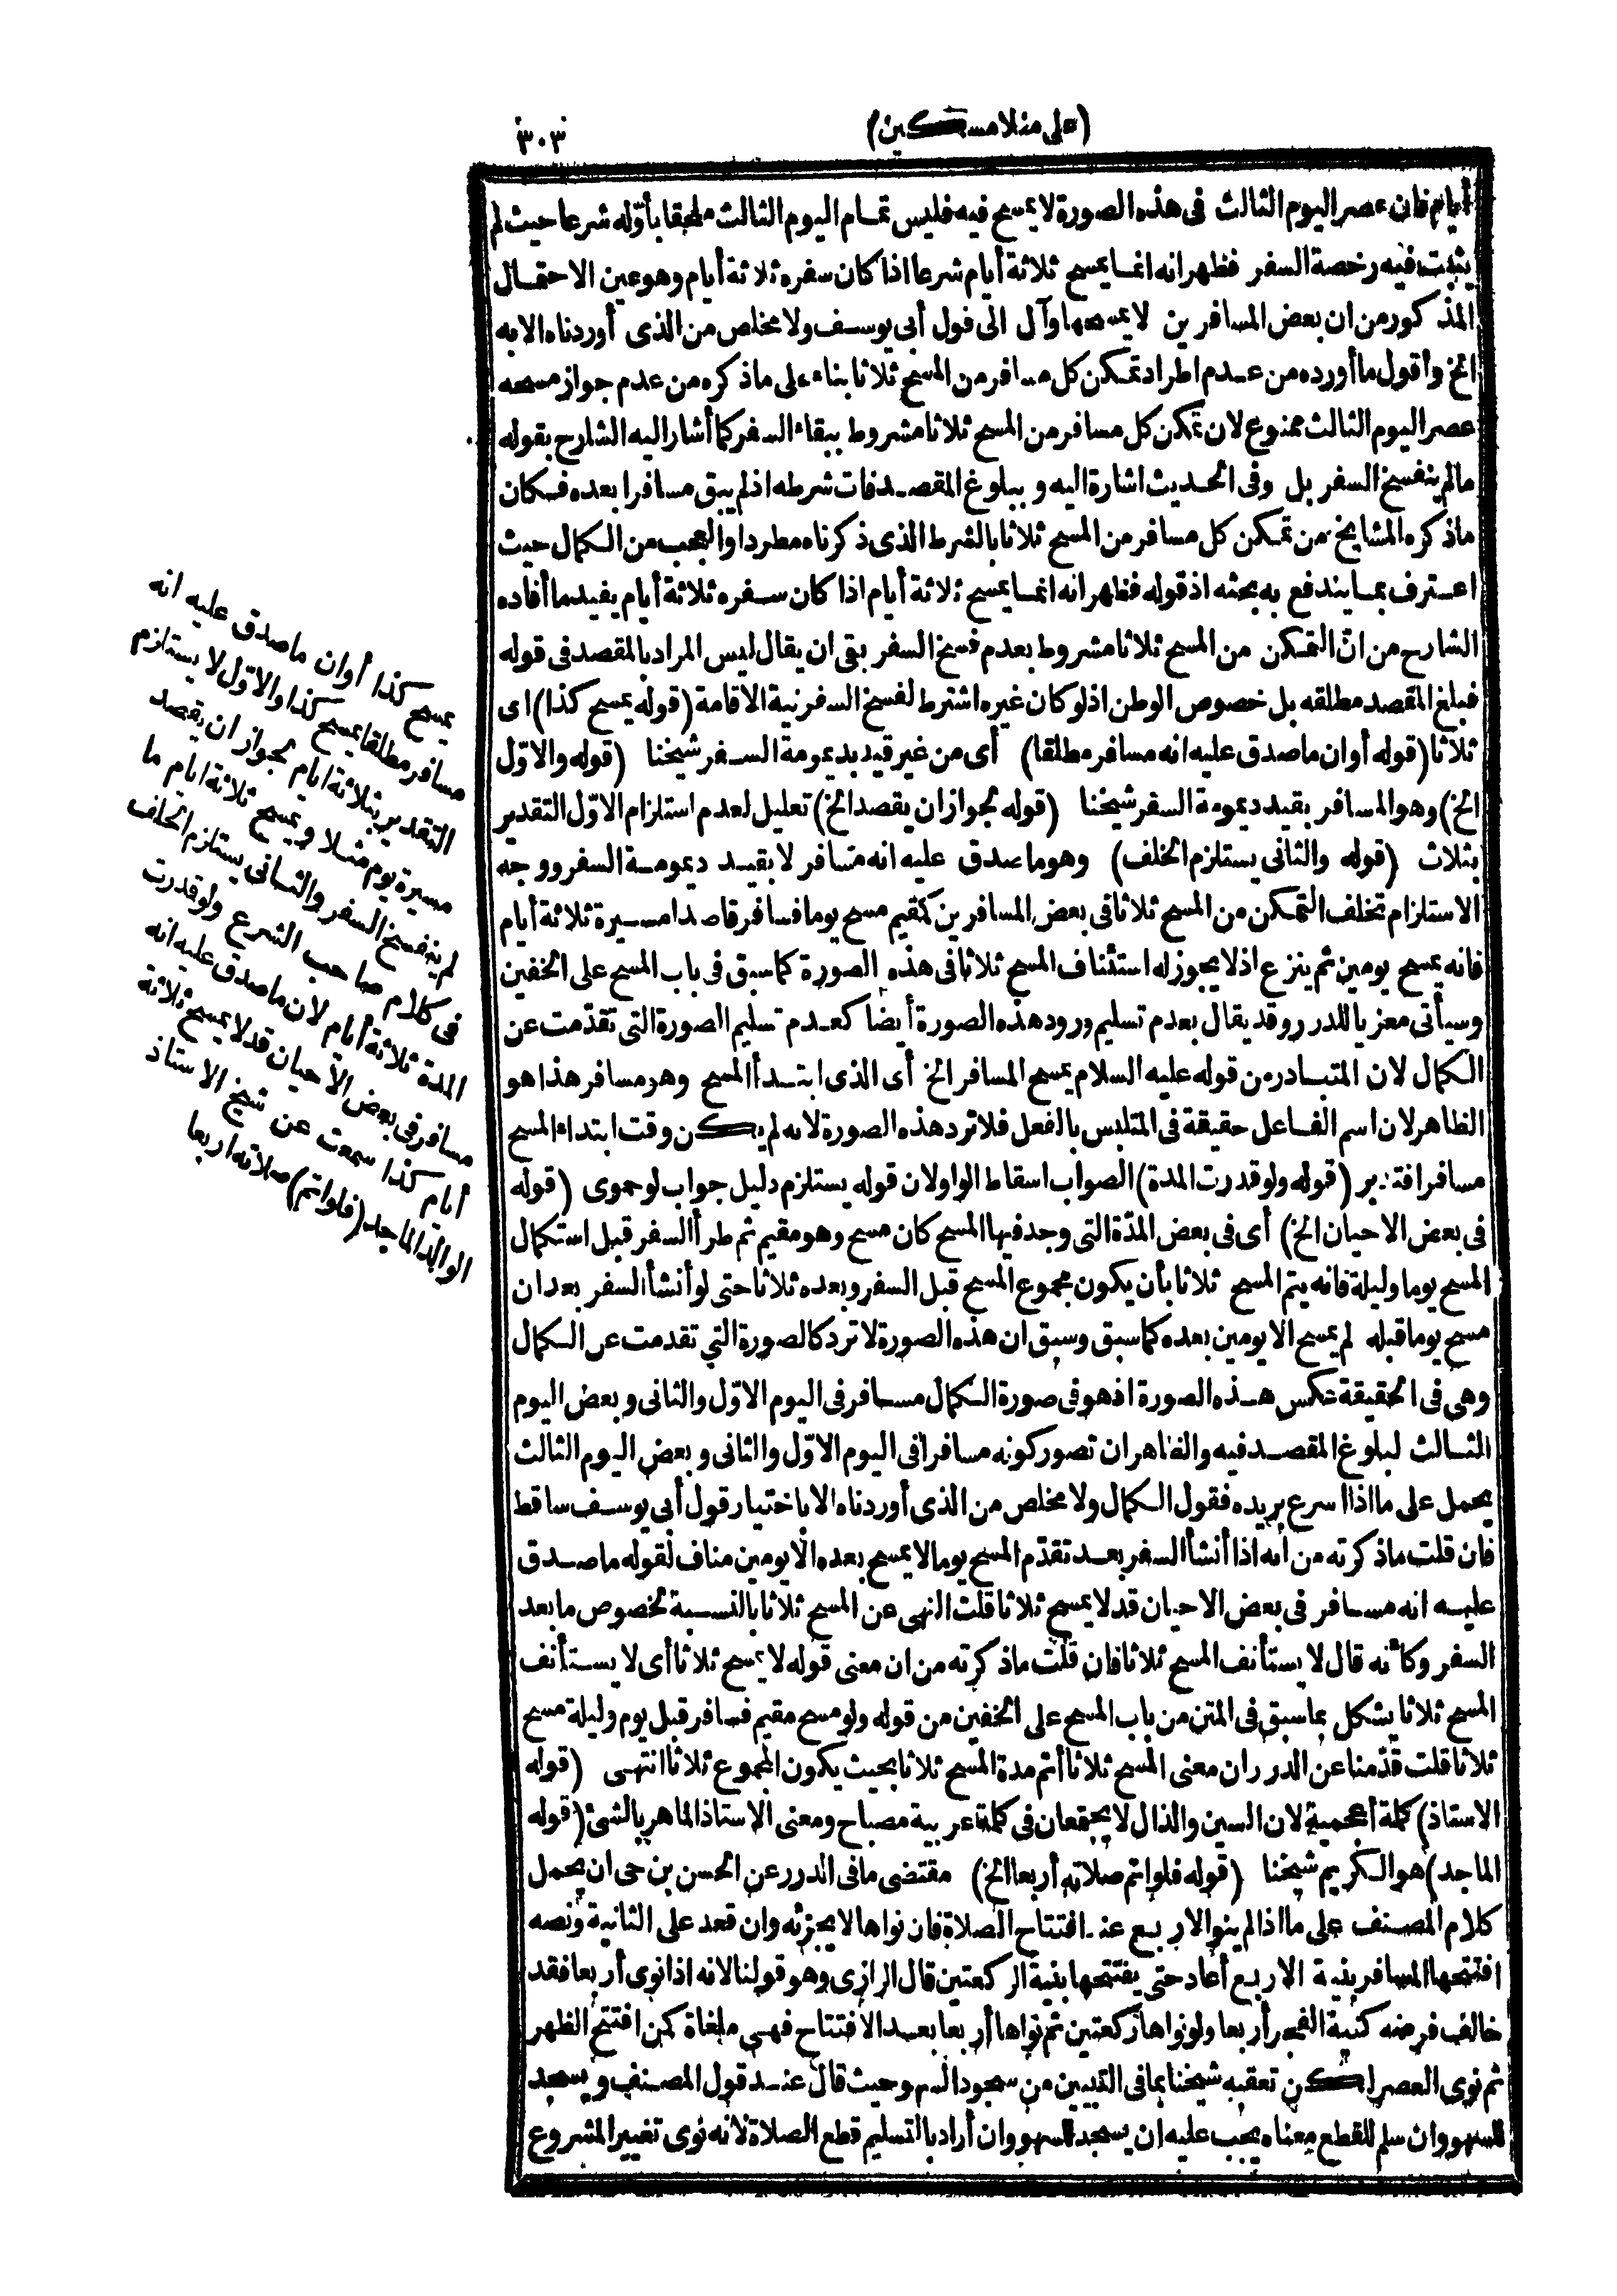 (على منلا مسكين)
٣٠٣
أيام فان عصر اليوم الثالث فى هذه الصورة لا يمسح فيه فليس تمام اليوم الثالث ملحقا بأوّله شرعا حيث لم
يثبت فيه رخصة السفر فظهر انه انما يمسح ثلاثة أيام شرعا اذا كان سفره ثلاثة أيام وهو عين الاحتمال
المذكور من ان بعض المسافرين لا يمسحها وآل الى قول أبى يوسف ولا مخلص من الذى أوردناه الا به
الخ وأقول ما أورده من عدم اطراد تمكن كل مسافر من المسح ثلاثا بناء على ما ذكره من عدم جواز مسحه
عصر اليوم الثالث ممنوع لان تمكن كل مسافر من المسح ثلاثا مشروط ببقاء السفر كما أشار اليه الشارح بقوله
مالم ينفسخ السفر بل وفى الحديث اشارة اليه و ببلوغ المقصد فات شرطه اذ لم يبق مسافرا بعده فكان
ما ذكره المشايخ من تمكن كل مسافر من المسح ثلاثا بالشرط الذى ذكرناه مطردا والعجب من الكمال حيث
اعترف بما يندفع به بحثه اذ قوله فظهر انه انما يمسح ثلاثة أيام اذا كان سفره ثلاثة أيام يفيد ما أفاده
الشارح من انّ التمكن من المسح ثلاثا مشروط بعدم فسخ السفر بقى ان يقال ليس المراد بالمقصد فى قوله
فبلغ المقصد مطلقه بل خصوص الوطن اذ لو كان غيره اشترط لفسخ السفر نية الاقامة (قوله يمسح كذا) اى
ثلاثا (قوله أو ان ما صدق عليه انه مسافر مطلقا) أى من غير قيد بديمومة السفر شيخنا (قوله والاوّل
الخ) وهو المسافر بقيد ديمومة السفر شيخنا (قوله لجواز ان يقصد الخ) تعليل لعدم استلزام الاوّل التقدير
بثلاث (قوله والثانى يستلزم الخلف) وهو ما صدق عليه انه مسافر لا بقيد ديمومة السفر ووجه
الاستلزام تخلف التمكن من المسح ثلاثا فى بعض المسافرين كمقيم مسح يوما فسافر قاصدا مسيرة ثلاثة أيام
فانه يمسح يومين ثم ينزع اذ لا يجوز له استئناف المسح ثلاثا فى هذه الصورة كما سبق فى باب المسح على الخفين
وسيأتى معزيا للدرر وقد يقال بعدم تسليم ورود هذه الصورة أيضا كعدم تسليم الصورة التى تقدّمت عن
الكمال لان المتبادر من قوله عليه السلام يمسح المسافر الخ أى الذى ابتدأ المسح وهو مسافر هذا هو
الظاهر لان اسم الفاعل حقيقة فى المتلبس بالفعل فلا ترد هذه الصورة لانه لم يكن وقت ابتداء المسح
مسافرا فتدبر (قوله ولو قدرت المدة) الصواب اسقاط الواو لان قوله يستلزم دليل جواب لو حموى (قوله
فى بعض الاحيان الخ) أى فى بعض المدّة التى وجد فيها المسح كان مسح وهو مقيم ثم طرأ السفر قبل استكمال
المسح يوما وليلة فانه يتم المسح ثلاثا بأن يكون مجموع المسح قبل السفر وبعده ثلاثا حتى لو أنشأ السفر بعد ان
مسح يوما قبله لم يمسح الا يومين بعده كما سبق وسبق ان هذه الصورة لا ترد كالصورة التى تقدمت عن الكمال
وهى فى الحقيقة عكس هذه الصورة اذ هو فى صورة الكمال مسافر فى اليوم الاوّل والثانى و بعض اليوم
الثالث لبلوغ المقصد فيه والظاهر ان تصور كونه مسافرا فى اليوم الاوّل والثانى و بعض اليوم الثالث
يحمل على ما اذا اسرع بريده فقول الكمال ولا مخلص من الذى أوردناه الا باختيار قول أبى يوسف ساقط
فان قلت ما ذكرته من انه اذا أنشأ السفر بعد تقدّم المسح يوما لا يمسح بعده الا يومين مناف لقوله ما صدق
عليه انه مسافر فى بعض الاحيان قد لا يمسح ثلاثا قلت النهى عن المسح ثلاثا بالنسبة لخصوص ما بعد
السفر وكأنه قال لا يستأنف المسح ثلاثا فان قلت ما ذكرته من ان معنى قوله لا يمسح ثلاثا أى لا يستأنف
المسح ثلاثا يشكل بما سبق فى المتن من باب المسح على الخفين من قوله ولو مسح مقيم فسافر قبل يوم وليلة مسح
ثلاثا قلت قدّمنا عن الدرر ان معنى المسح ثلاثا أتم مدة المسح ثلاثا بحيث يكون المجموع ثلاثا انتهى (قوله
الاستاذ) كلمة أعجمية لان السين والذال لا يجتمعان فى كلمة عربية مصباح ومعنى الاستاذ الماهر بالشئ (قوله
الماجد) هو الكريم شيخنا (قوله فلو اتم صلاته أربعا الخ) مقتضى ما فى الدرر عن الحسن بن حى ان يحمل
كلام المصنف على ما اذا لم ينو الاربع عند افتتاح الصلاة فان نواها لا يجزئه وان قعد على الثانية ونصه
افتتحها المسافر بنية الاربع أعاد حتى يفتتحها بنية الركعتين قال الرازى وهو قولنا لانه اذا نوى أربعا فقد
خالف فرضه كنية الفجر أربعا ولو نواها ركعتين ثم نواها أربعا بعد الافتتاح فهى ملغاة كمن افتتح الظهر
ثم نوى العصر لكن تعقبه شيخنا بما فى التبيين من سجود السهو حيث قال عند قول المصنف ويسجد
للسهو وان سلم للقطع معناه يجب عليه ان يسجد للسهو وان أراد بالتسليم قطع الصلاة لانه نوى تغيير المشروع
يمسح كذا أو ان ما صدق عليه انه
مسافر مطلقا يمسح كذا والاوّل لا يستلزم
التقدير بثلاثة ايام لجواز ان يقصد
مسيرة يوم مثلا ويمسح ثلاثة ايام ما
لم ينفسخ السفر والثانى يستلزم الخلف
فى كلام صاحب الشرع ولو قدرت
المدة ثلاثة أيام لان ما صدق عليه انه
مسافر فى بعض الأحيان قد لا يمسح ثلاثة
أيام كذا سمعت عن شيخ الاستاذ
الوالد الماجد (فلو اتم) صلاته اربعا